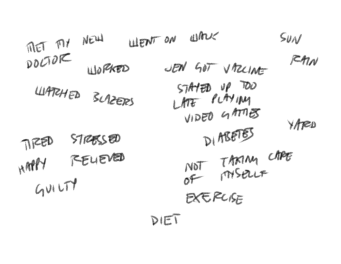 MET MY NEW
DOCTOR
WENT ON WALK
SUN
RAIN
WORKED
JEN GOT VACCINE
WATCHED BLAZERS
STAYED UP TOO
LATE PLAYING
VIDEO GAMES
YARD
TIRED STRESSED
DIABETES
HAPPY RELIEVED
NOT TAKING CARE
OF MYSELF
GUILTY
EXERCISE
DIET